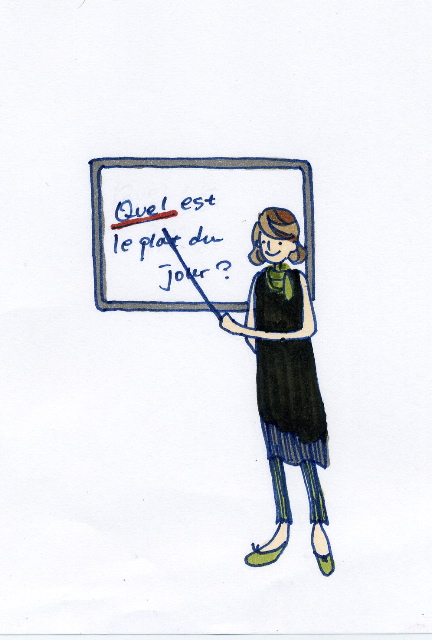 Quel est
le plat du
jour ?